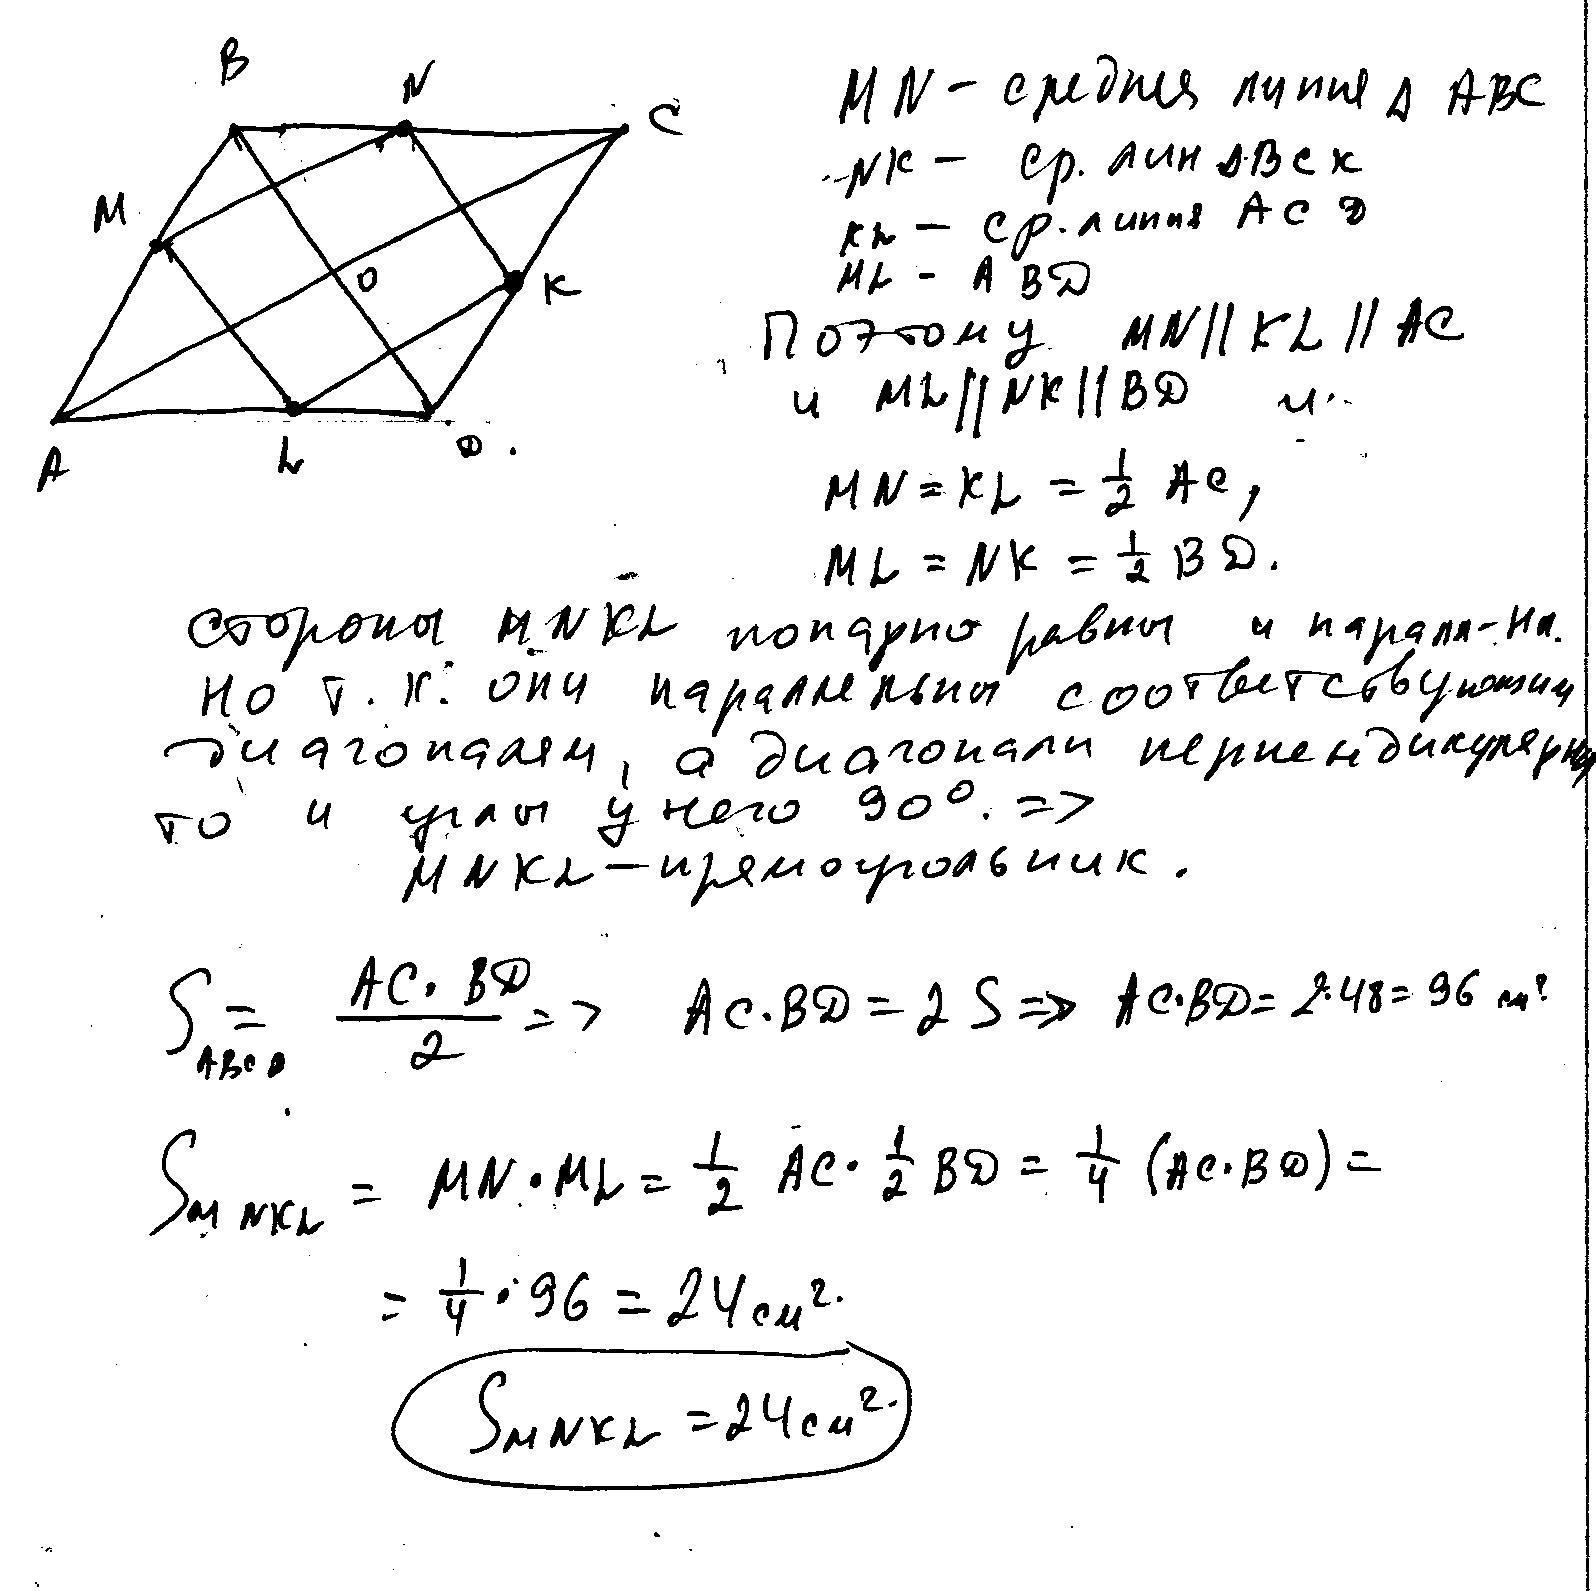 B
N
C
M
O
K
A
L
D.
MN - средняя линия Δ ABC
NK - ср. лин ΔBCK
KL - ср. линия ACD
ML - ABD
Поэтому MN || KL || AC
и ML || NK || BD и
MN = KL = 1/2 AC,
ML = NK = 1/2 BD.
Стороны MNKL попарно равны и паралл-ны.
Но т. к. они параллельны соответствующим
диагоналям, а диагонали перпендикулярны
то и углы у него 90°. =>
MNKL - прямоугольник.
S ABCD = AC · BD / 2 => AC · BD = 2 S => AC · BD = 2·48 = 96 см²
S MNKL = MN · ML = 1/2 AC · 1/2 BD = 1/4 (AC · BD) =
= 1/4 · 96 = 24 см².
S MNKL = 24 см².